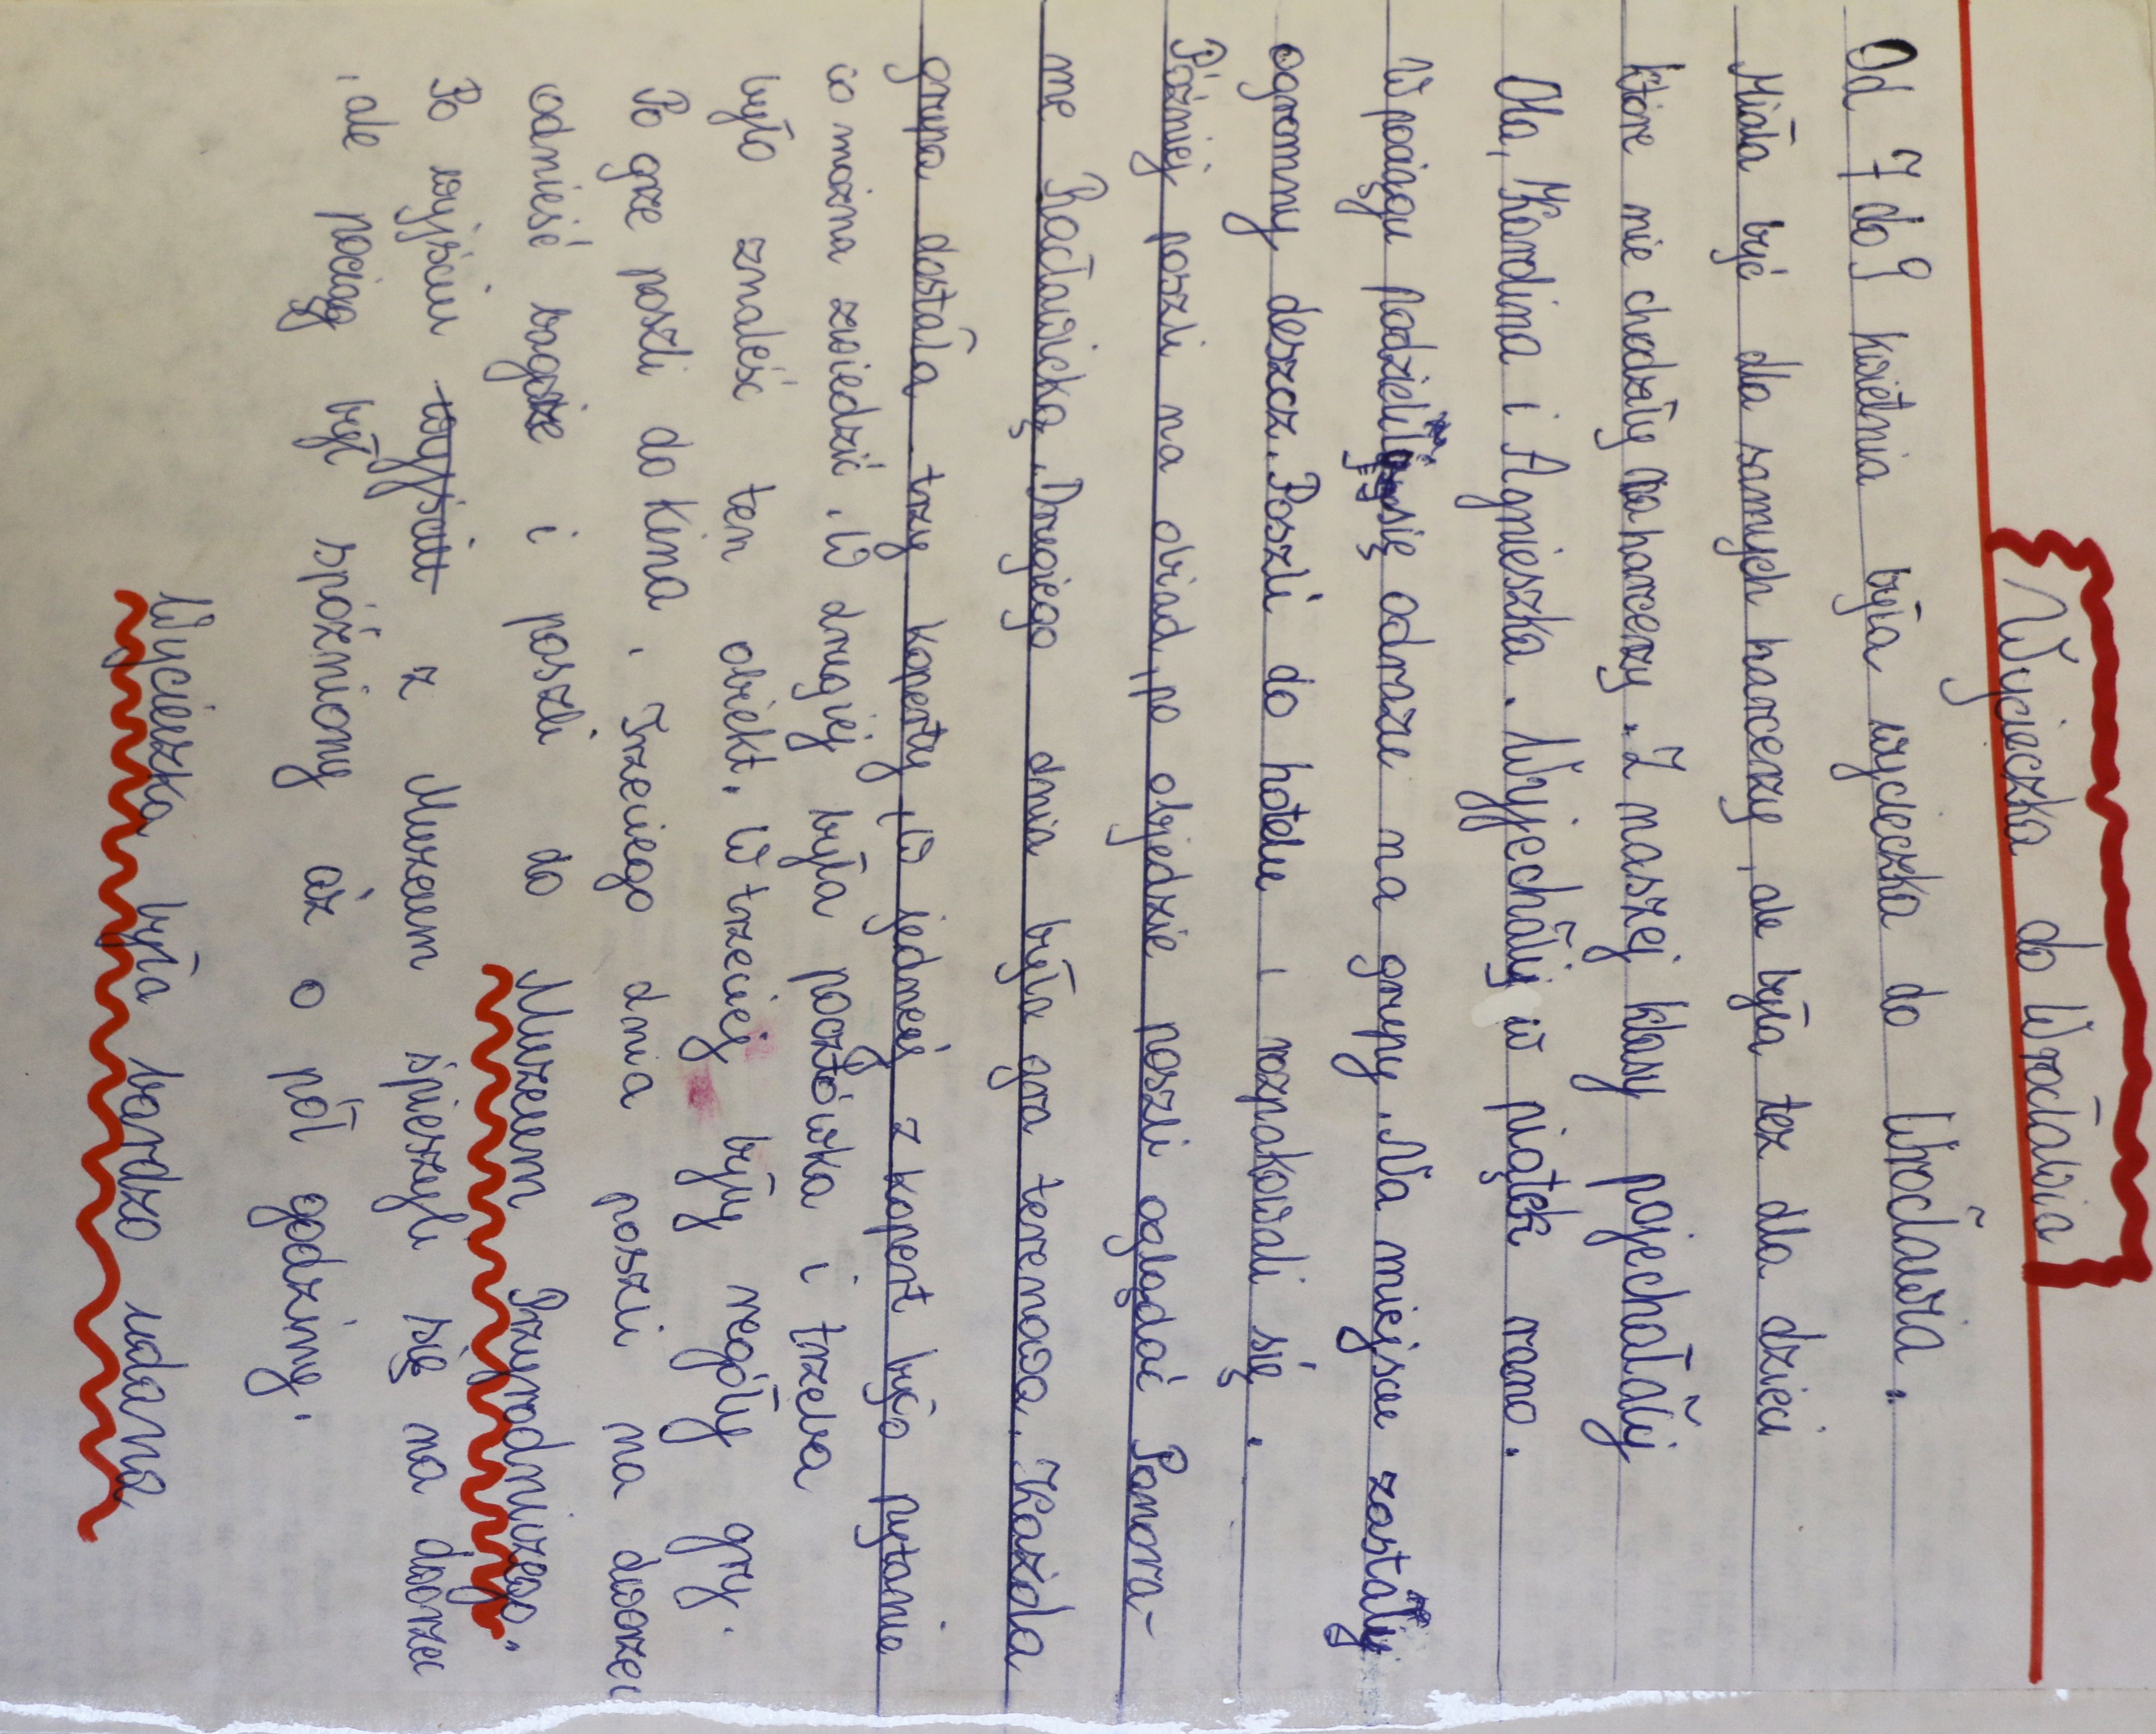 Wycieczka do Wrocławia
Od 7 do 9 kwietnia była wycieczka do Wrocławia.
Miała być dla samych harcerzy, ale była tez dla dzieci
które nie chodziły na harcerzy. Z naszej klasy pojechały
Ola, Karolina i Agnieszka. Wyjechały w piątek rano.
W pociągu podzieliły się odrazie na grupy. Na miejsce zastały
ogromny deszcz. Poszli do hotelu i rozpakowali się.
Później poszli na obiad, po objedzie poszli oglądać Panora-
mę Racławicką. Drugiego dnia była gra terenowa. Każda
grupa dostała trzy koperty, w jednej z kopert było pytanie
co można zwiedzić. W drugiej była pocztówka i trzeba
było znaleść ten obiekt. W trzeciej były reguły gry.
Po grze poszli do kina. Trzeciego dnia poszli na dworzec
odnieść bagaże i poszli do Muzeum Przyrodniczego.
Po wyjściu wyjściu z Muzeum śpieszyli się na dworzec
, ale pociąg był spóźniony aż o pół godziny.
Wycieczka była bardzo udana